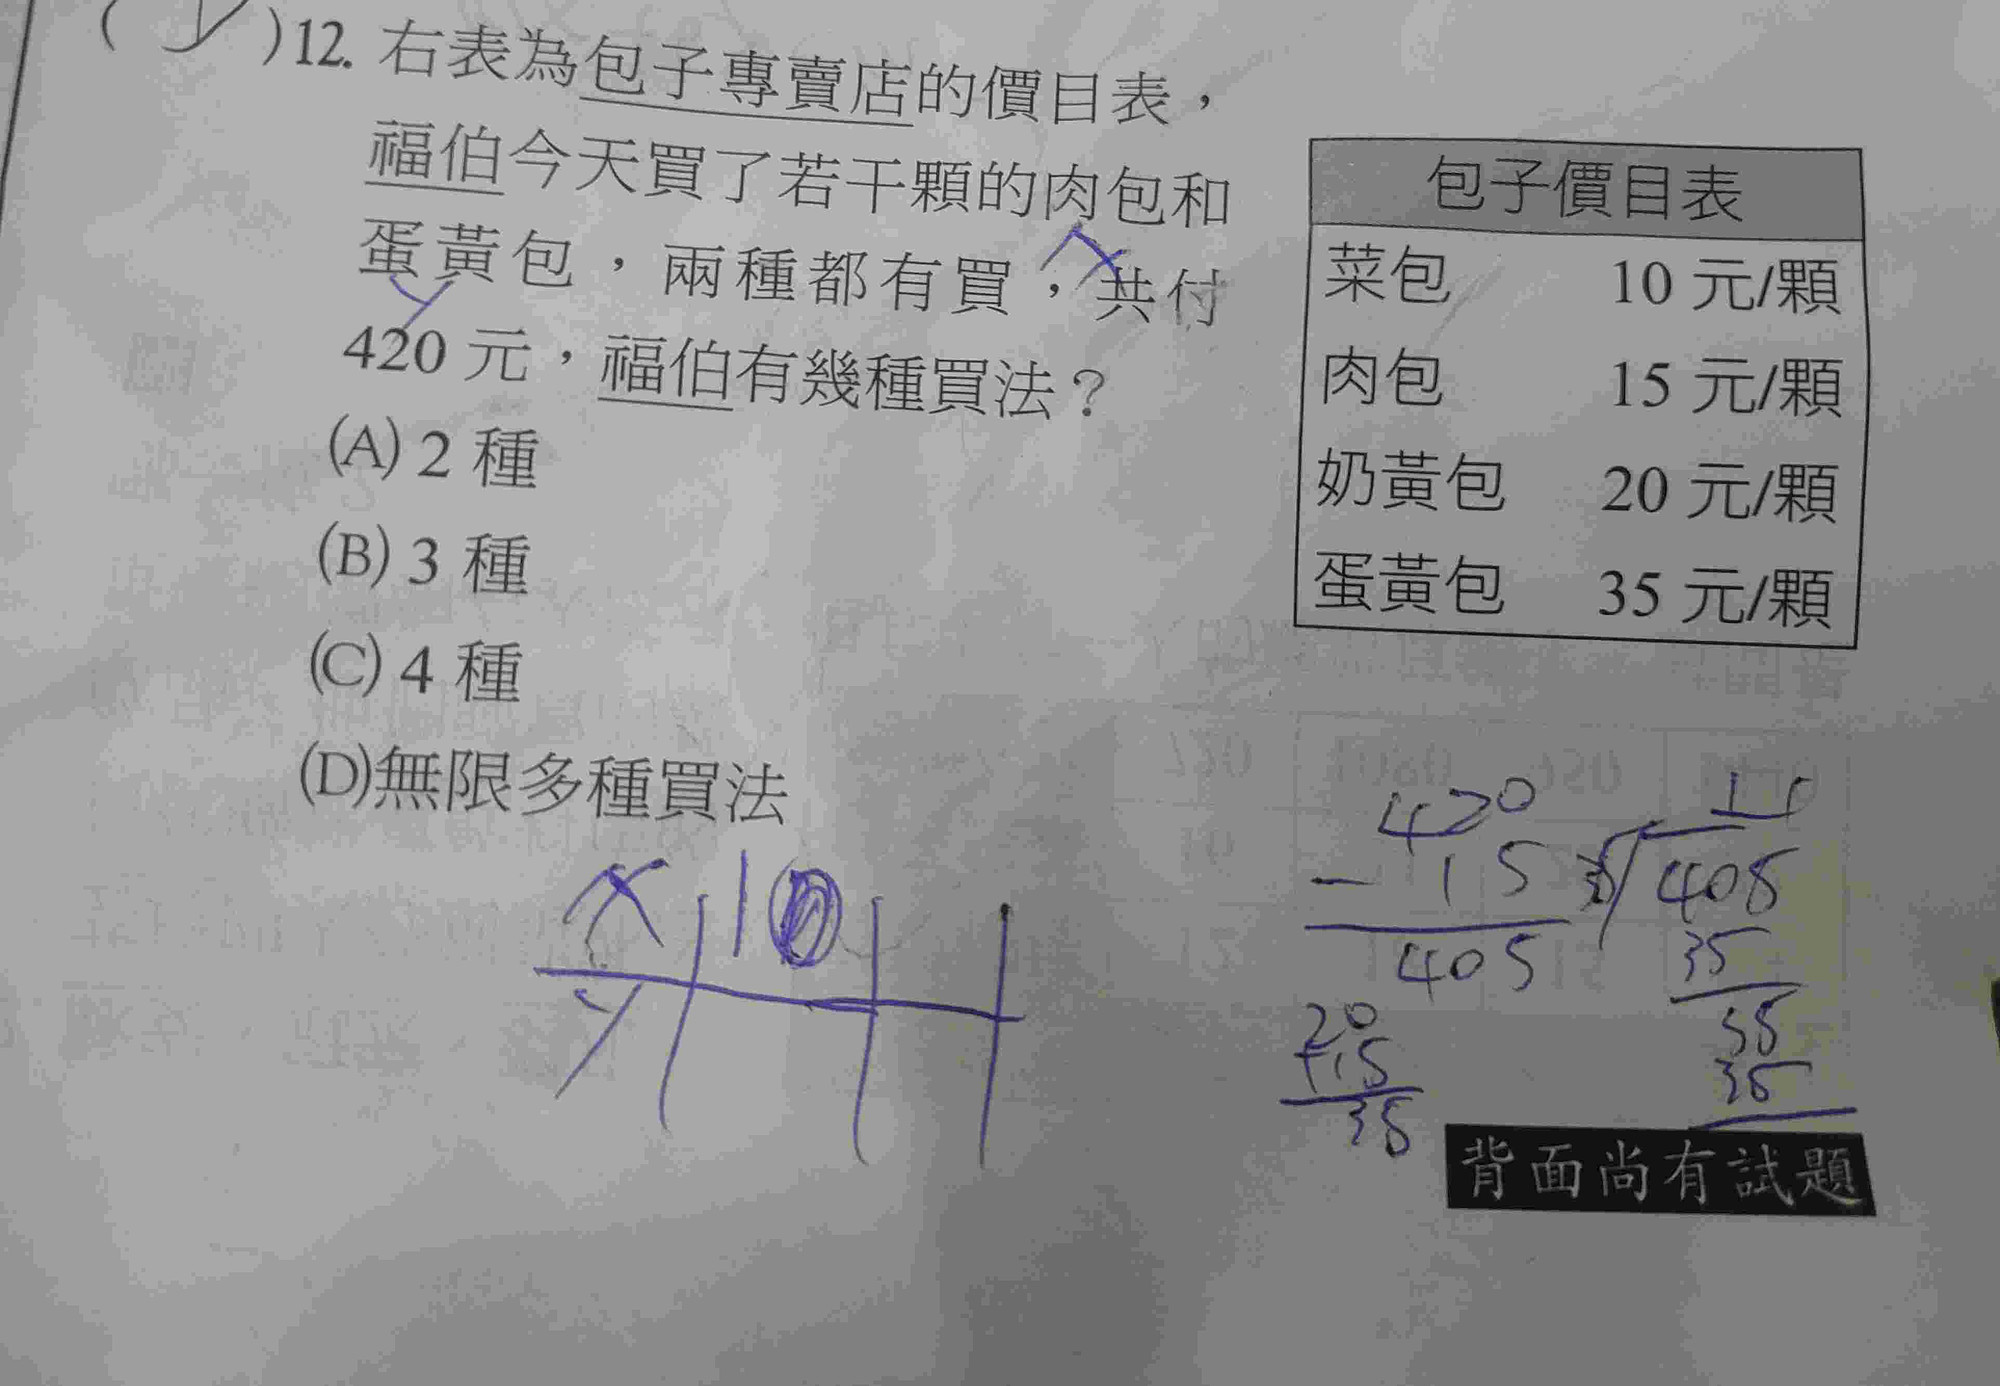 ( )12. 右表為包子專賣店的價目表，
福伯今天買了若干顆的肉包和
蛋黃包，兩種都有買，共付
420 元，福伯有幾種買法？
(A) 2 種
(B) 3 種
(C) 4 種
(D)無限多種買法
包子價目表
菜包 10 元/顆
肉包 15 元/顆
奶黃包 20 元/顆
蛋黃包 35 元/顆
x
y
x 1
y
420
- 15
405
20
+15
35
11
35 405
35
55
35
背面尚有試題